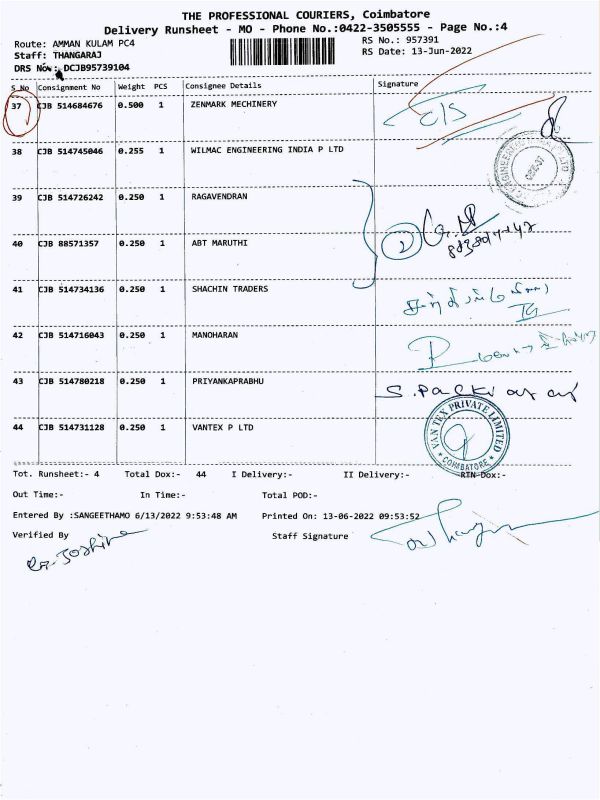 THE PROFESSIONAL COURIERS, Coimbatore
Delivery Runsheet - MO - Phone No.:0422-3505555 - Page No.:4
Route: AMMAN KULAM PC4
RS No.: 957391
Staff: THANGARAJ
RS Date: 13-Jun-2022
DRS No.: DCJB95739104
S_No Consignment No Weight PCS Consignee Details Signature
37 CJB 514684676 0.500 1 ZENMARK MECHINERY
38 CJB 514745046 0.255 1 WILMAC ENGINEERING INDIA P LTD
39 CJB 514726242 0.250 1 RAGAVENDRAN
40 CJB 88571357 0.250 1 ABT MARUTHI
41 CJB 514734136 0.250 1 SHACHIN TRADERS
42 CJB 514716043 0.250 1 MANOHARAN
43 CJB 514780218 0.250 1 PRIYANKAPRABHU
44 CJB 514731128 0.250 1 VANTEX P LTD
VAN TEX PRIVATE LIMITED
COIMBATORE
Tot. Runsheet:- 4 Total Dox:- 44 I Delivery:- II Delivery:- RTN Dox:-
Out Time:- In Time:- Total POD:-
Entered By :SANGEETHAMO 6/13/2022 9:53:48 AM Printed On: 13-06-2022 09:53:52
Verified By Staff Signature